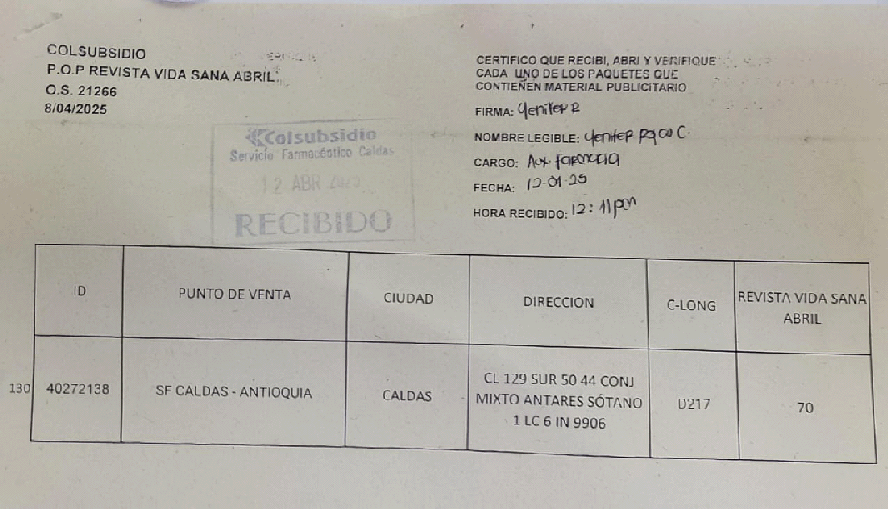 COLSUBSIDIO
P.O.P REVISTA VIDA SANA ABRIL
O.S. 21266
8/04/2025
Colsubsidio
Servicio Farmacéutico Caldas
12 ABR
RECIBIDO
CERTIFICO QUE RECIBI, ABRI Y VERIFIQUE
CADA UNO DE LOS PAQUETES QUE
CONTIENEN MATERIAL PUBLICITARIO
FIRMA: Yenifer R
NOMBRE LEGIBLE: Yenifer C
CARGO: Aux farmacia
FECHA:
HORA RECIBIDO: 12:11pm
ID
PUNTO DE VENTA
CIUDAD
DIRECCION
C-LONG
REVISTA VIDA SANA
ABRIL
130
40272138
SF CALDAS - ANTIOQUIA
CALDAS
CL 129 SUR 50 44 CONJ
MIXTO ANTARES SÓTANO
1 LC 6 IN 9906
D217
70